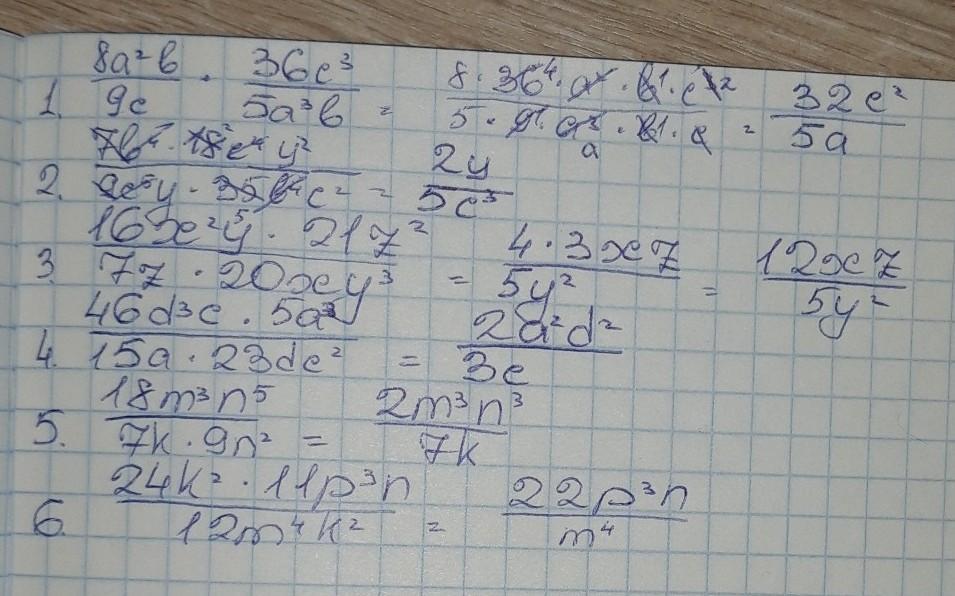 1. 8a²b/9c · 36c³/5a³b = 8·36⁴·a²·b¹·c³²/5·9¹·a³a·b¹·c = 32c²/5a
2. 7b⁴·18²c⁴y²/9c⁵y·35b⁴c² = 2y/5c³
3. 16x²y·21z²/7z·20xy³ = 4·3xz/5y² = 12xz/5y²
4. 46d³c·5a³/15a·23dc² = 2a²d²/3c
5. 18m³n⁵/7k·9n² = 2m³n³/7k
6. 24k²·11p³n/12m⁴k² = 22p³n/m⁴